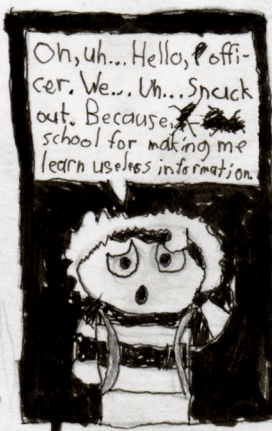 Oh, uh... Hello, offi-
cer. We... Uh... Snuck
out. Because,
school for making me
learn useless information.